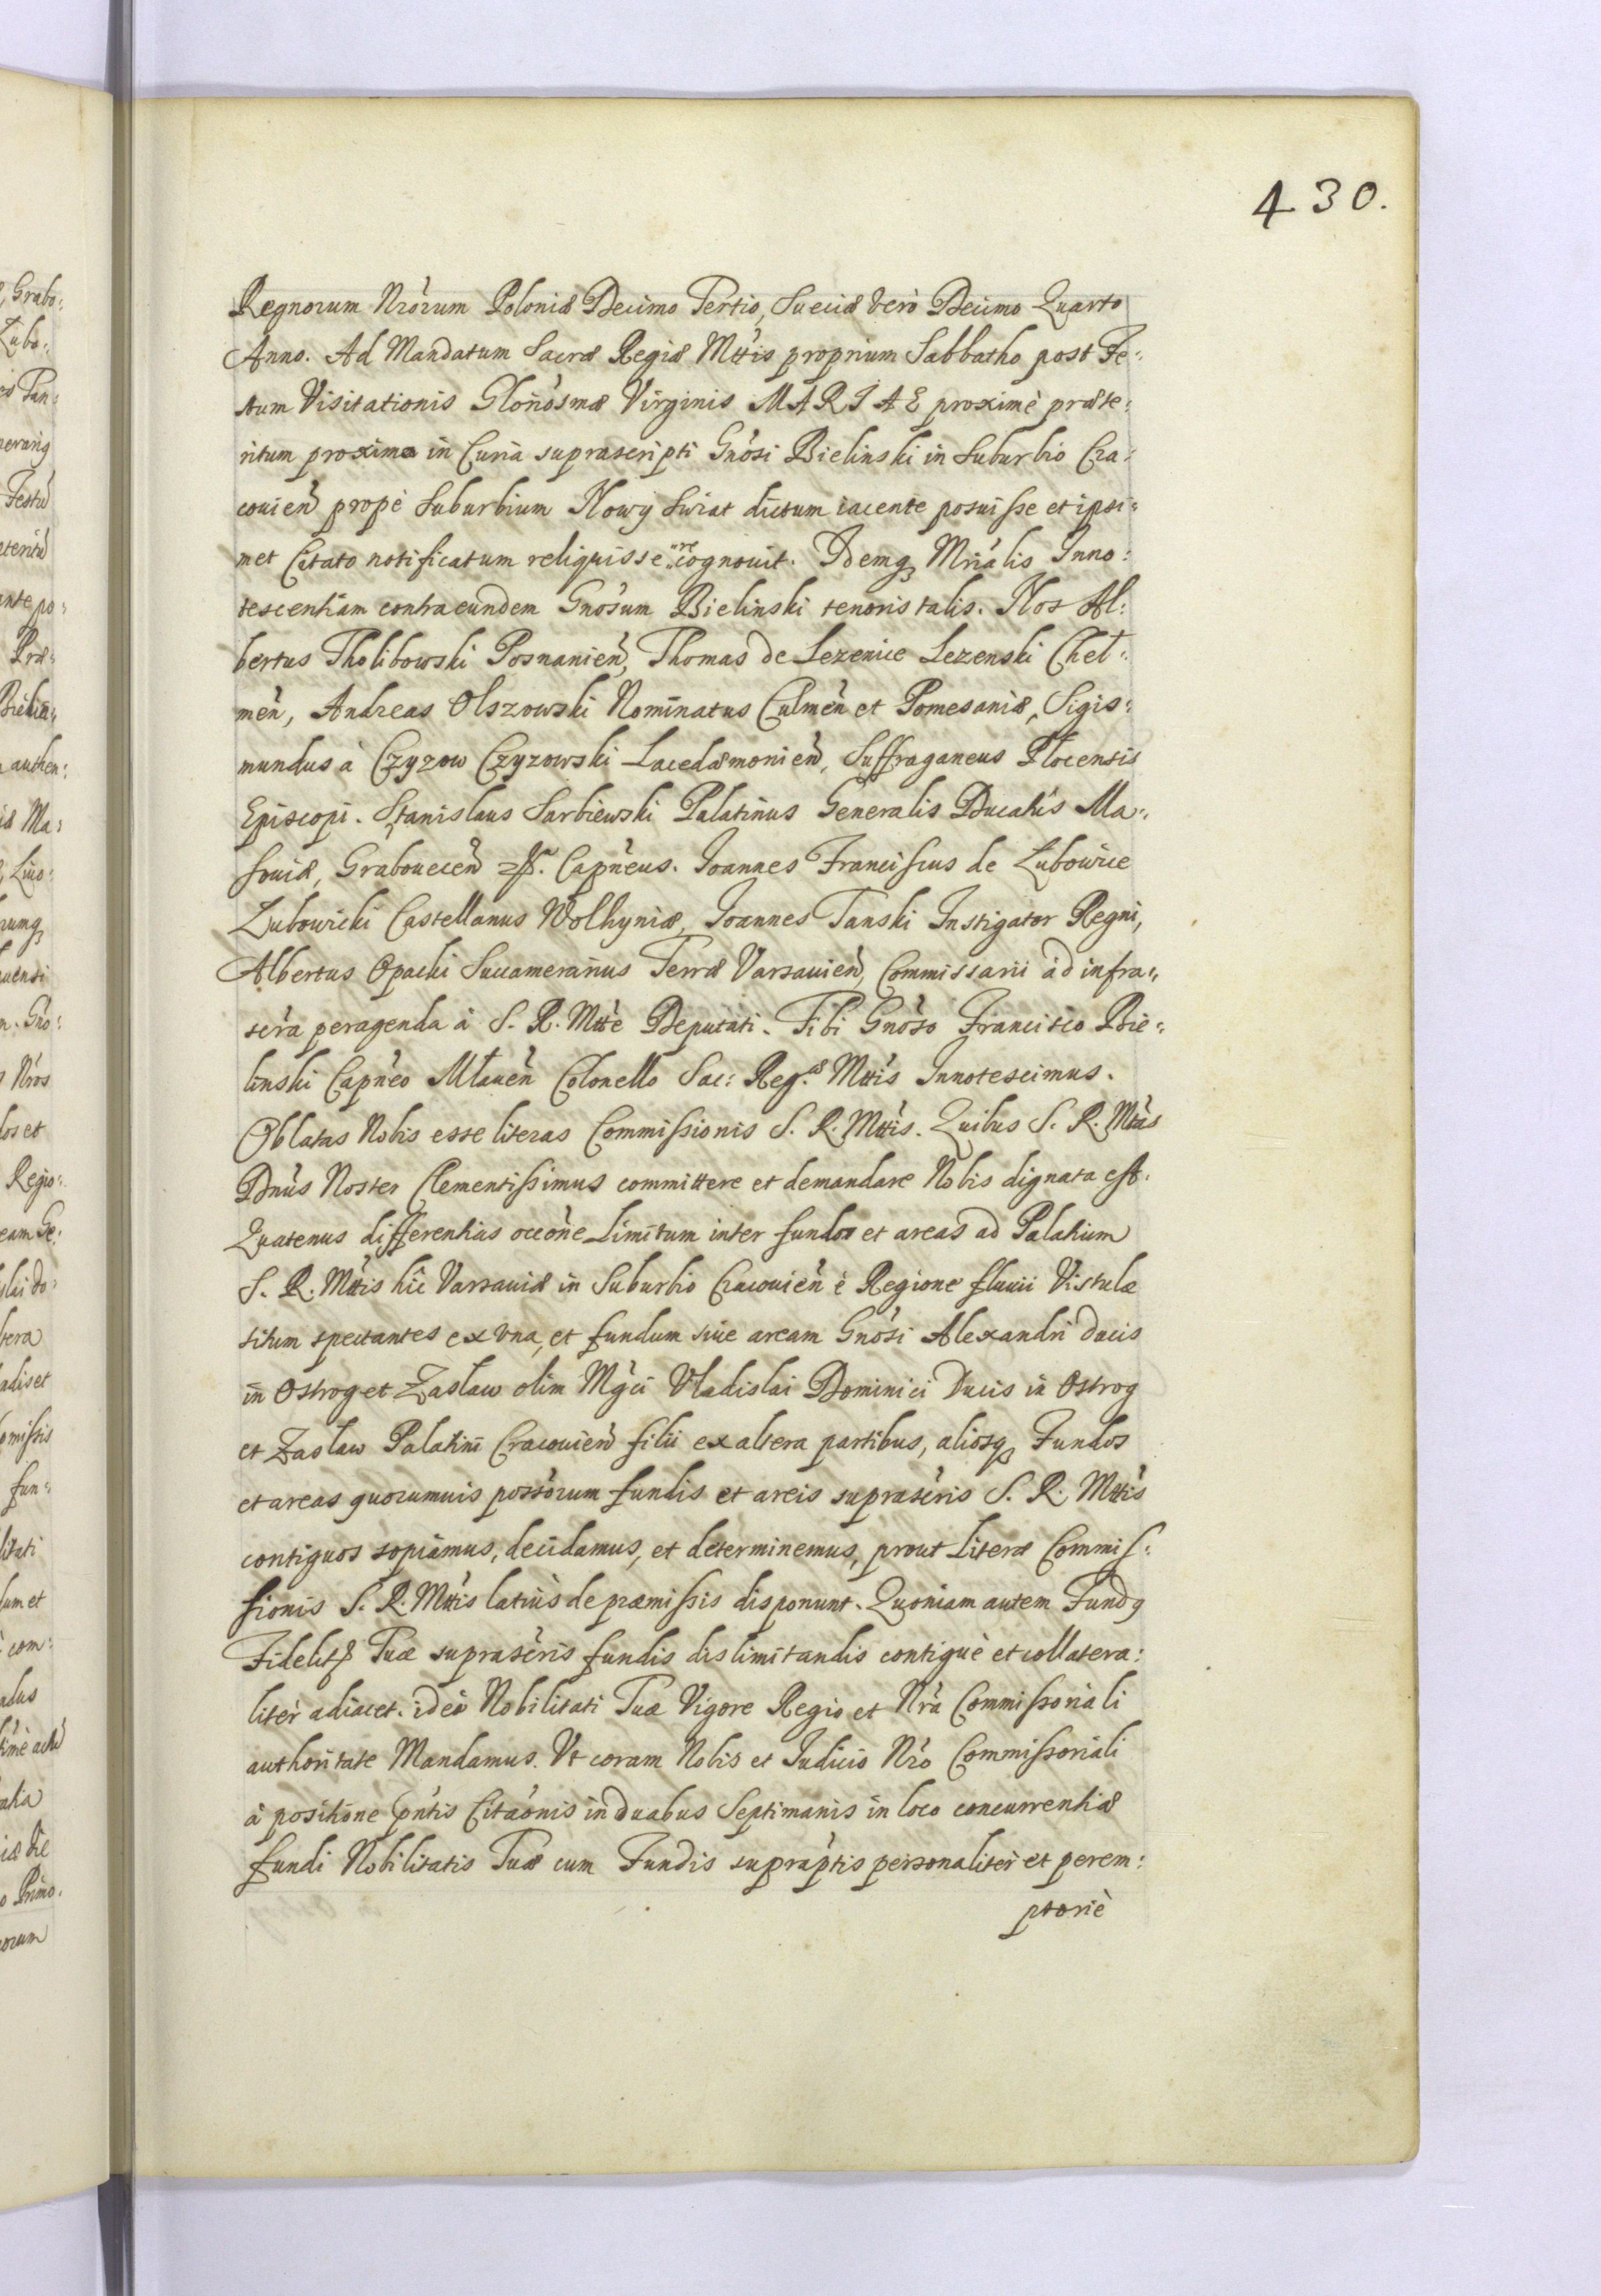 430.
Regnorum Nrôrum Poloniæ Decimo Tertio, Sueciæ verò Decimo Quarto
Anno. Ad Mandatum Sacræ Regiæ Mttis proprium Sabbatho post Fe:
stum Visitationis Gloriosmæ Virginis MARIAE proximè præte:
ritum proxima in Curia suprascripti Gnôsi Bielinski in Suburbio Cra:
couien̄ propè Suburbium Nowy Swiat dictum iacente posuisse et ipsi:
met Citato notificatum reliquisse recognouit. Idemq Mrialis Inno:
tescentiam contra eundem Gnôsum Bielinski tenoris talis. Nos Al:
bertus Tholibowski Posnanien̄, Thomas de Lezenice Lezenski Cheł:
men̄, Andreas Olszowski Nominatus Culmen̄ et Pomesaniæ, Sigis:
mundus à Czyzow Czyzowski Lacedæmonien̄, Suffraganeus Plocensis
Episcopi. Stanislaus Sarbiewski Palatinus Generalis Ducatûs Ma:
souiæ, Grabouecen̄ Capn̄eus. Joannes Franciscus de Lubowice
Lubowicki Castellanus Wolhyniæ, Joannes Tanski Instigator Regni,
Albertus Opacki Succamerarius Terræ Varsauien̄, Commissarii ad infra:
scr̄a peragenda à S. R. Mtte Deputati. Tibi Gnôso Francisco Bie:
linski Capn̄eo Mławen̄ Colonello Sac: Reg.æ Mttis Innotescimus.
Oblatas Nobis esse literas Commissionis S. R. Mttis. Quibus S. R. Mtas
Dnūs Noster Clementissimus committere et demandare Nobis dignata est.
Quatenus differentias occone Limitum inter fundos et areas ad Palatium
S. R. Mttis hîc Varsauiæ in Suburbio Cracouien̄ è Regione fluuii Vistulæ
situm spectantes ex vna, et fundum siue aream Gnôsi Alexandri Ducis
in Ostrog et Zasław olim Mgci Vladislai Dominici Ducis in Ostrog
et Zasław Palatini Cracouien̄ filii ex altera partibus, aliosq Fundos
et areas quorumuis possorum fundis et areis suprascris S. R. Mttis
contiguos sopiamus, decidamus, et determinemus, prout Literæ Commis:
sionis S. R. Mttis latiùs de præmissis disponunt. Quoniam autem Fundq
Fidelitt Tuæ suprascris fundis dislimitandis contiguè et collatera:
liter adiacet. ideò Nobilitati Tuæ Vigore Regio et Nrâ Commissoriali
authoritate Mandamus. Vt coram Nobis et Judicio Nrô Commissoriali
à positione pn̄tis Citaônis in duabus Septimanis in loco concurrentiæ
fundi Nobilitatis Tuæ cum Fundis suprap̄tis personaliter et perem:
ptoriè